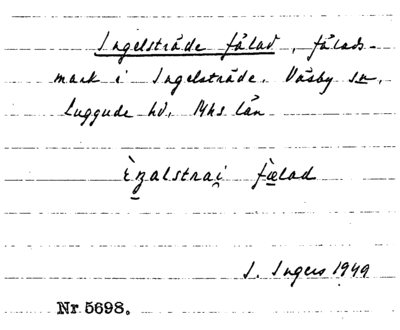 Ingelsträde fälad, fälads-
mark i Ingelsträde. Väsby sn.
Luggude hd. Mhs län
fælad
I. Ingers 1949
Nr 5698.